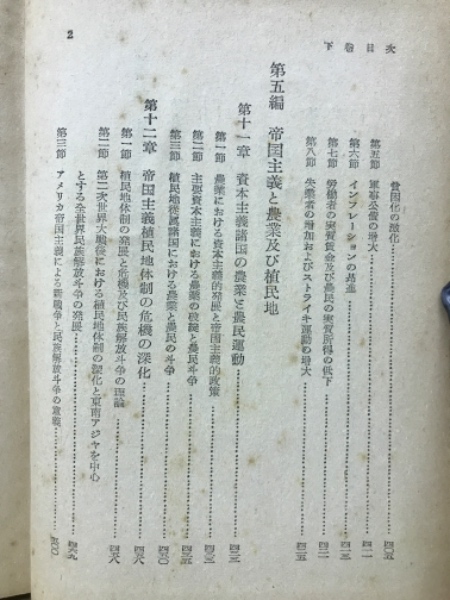 下巻目次
2
貧困化の激化
第五節 軍事公債の増大
第六節 インフレーションの昂進
第七節 労働者の実質賃金及び農民の実質所得の低下
第八節 失業者の増加およびストライキ運動の増大
第五編 帝国主義と農業及び植民地
第十一章 資本主義諸国の農業と農民運動
第一節 農業における資本主義的発展と帝国主義的政策
第二節 主要資本主義における農業の破綻と農民斗争
第三節 植民地従属諸国における農業と農民の斗争
第十二章 帝国主義植民地体制の危機の深化
第一節 植民地体制の発展と危機及び民族解放斗争の理論
第二節 第二次世界大戦後における植民地体制の深化と東南アジヤを中心
とする全世界民族解放斗争の発展
第三節 アメリカ帝国主義による新戦争と民族解放斗争の意義